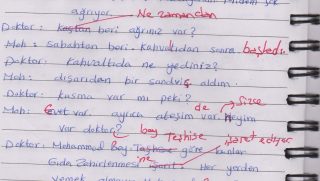 ağrıyor. Ne zamandan
Doktor: beri ağrınız var?
Moh: Sabahtan beri. kahvaltıdan sonra başladı.
Doktor: Kahvaltıda ne yediniz?
Moh: dışarıdan bir sandviç aldım.
Doktor: kusma var mı peki?
de Sizce
Moh: Evet var. ayrıca ateşim var. Neyim
var doktor? bey Teşhise işaret ediyor
Doktor: Mohammed Bey göre bunlar
Gıda Zehirlenmesi ne Her yerden
yemek